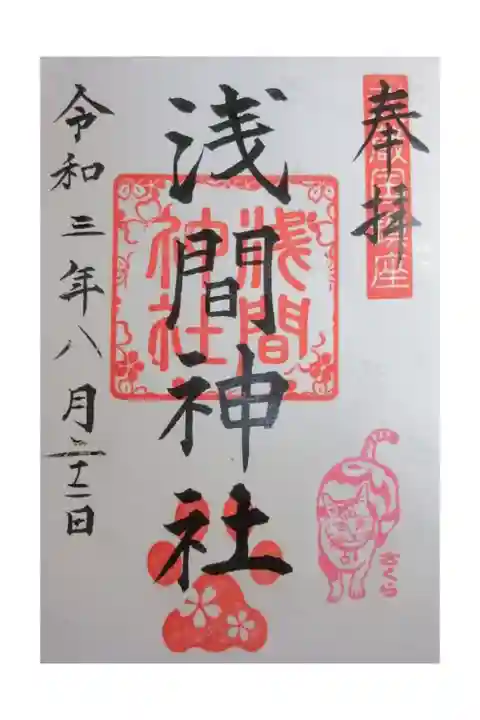 奉拝
浅間神社
浅間
神社
令和三年八月二十二日
さくら